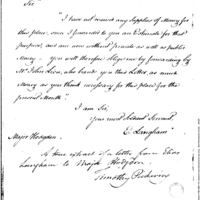 Sir
"I have not received any Supplies of Money for
this place, since I forwarded to you an Estimate for that
purpose, and am now without private as well as public
Money. You will therefore oblige me by forwarding by
Mr. John Lion, who hands you this Letter, as much
Money as you think necessary for this place for the
present Month."
I am Sir,
Your most Obedient Servant,
E. Langham"
Major Hodgdon.
A true extract of a letter from Elias
Langham to Major Hodgdon.
Timothy Pickering